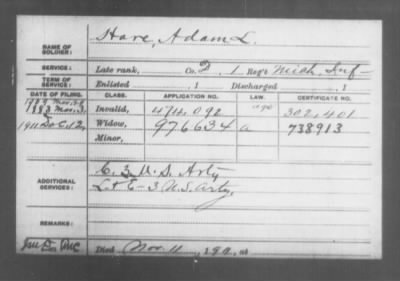 NAME OF SOLDIER: Hare, Adam L.
SERVICE: Late rank, Co. D, 1 Reg't Mich. Inf
TERM OF SERVICE: Enlisted , 1 Discharged , 1
DATE OF FILING. CLASS. APPLICATION NO. LAW. CERTIFICATE NO.
Nov. Invalid, 474,092 302,401
1911 Dec 12 Widow, 976634 a 738913
Minor,
ADDITIONAL SERVICES: U.S. Arty
L & E - 3 U.S. Arty.
REMARKS:
Died Nov. 11, 1911, at